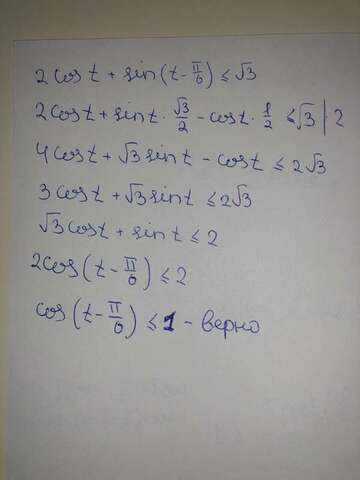 2cos t + sin(t - π/6) ≤ √3
2cos t + sin t · √3/2 - cos t · 1/2 ≤ √3 | 2
4cos t + √3 sin t - cos t ≤ 2√3
3cos t + √3 sin t ≤ 2√3
√3 cos t + sin t ≤ 2
2cos(t - π/6) ≤ 2
cos(t - π/6) ≤ 1 - верно